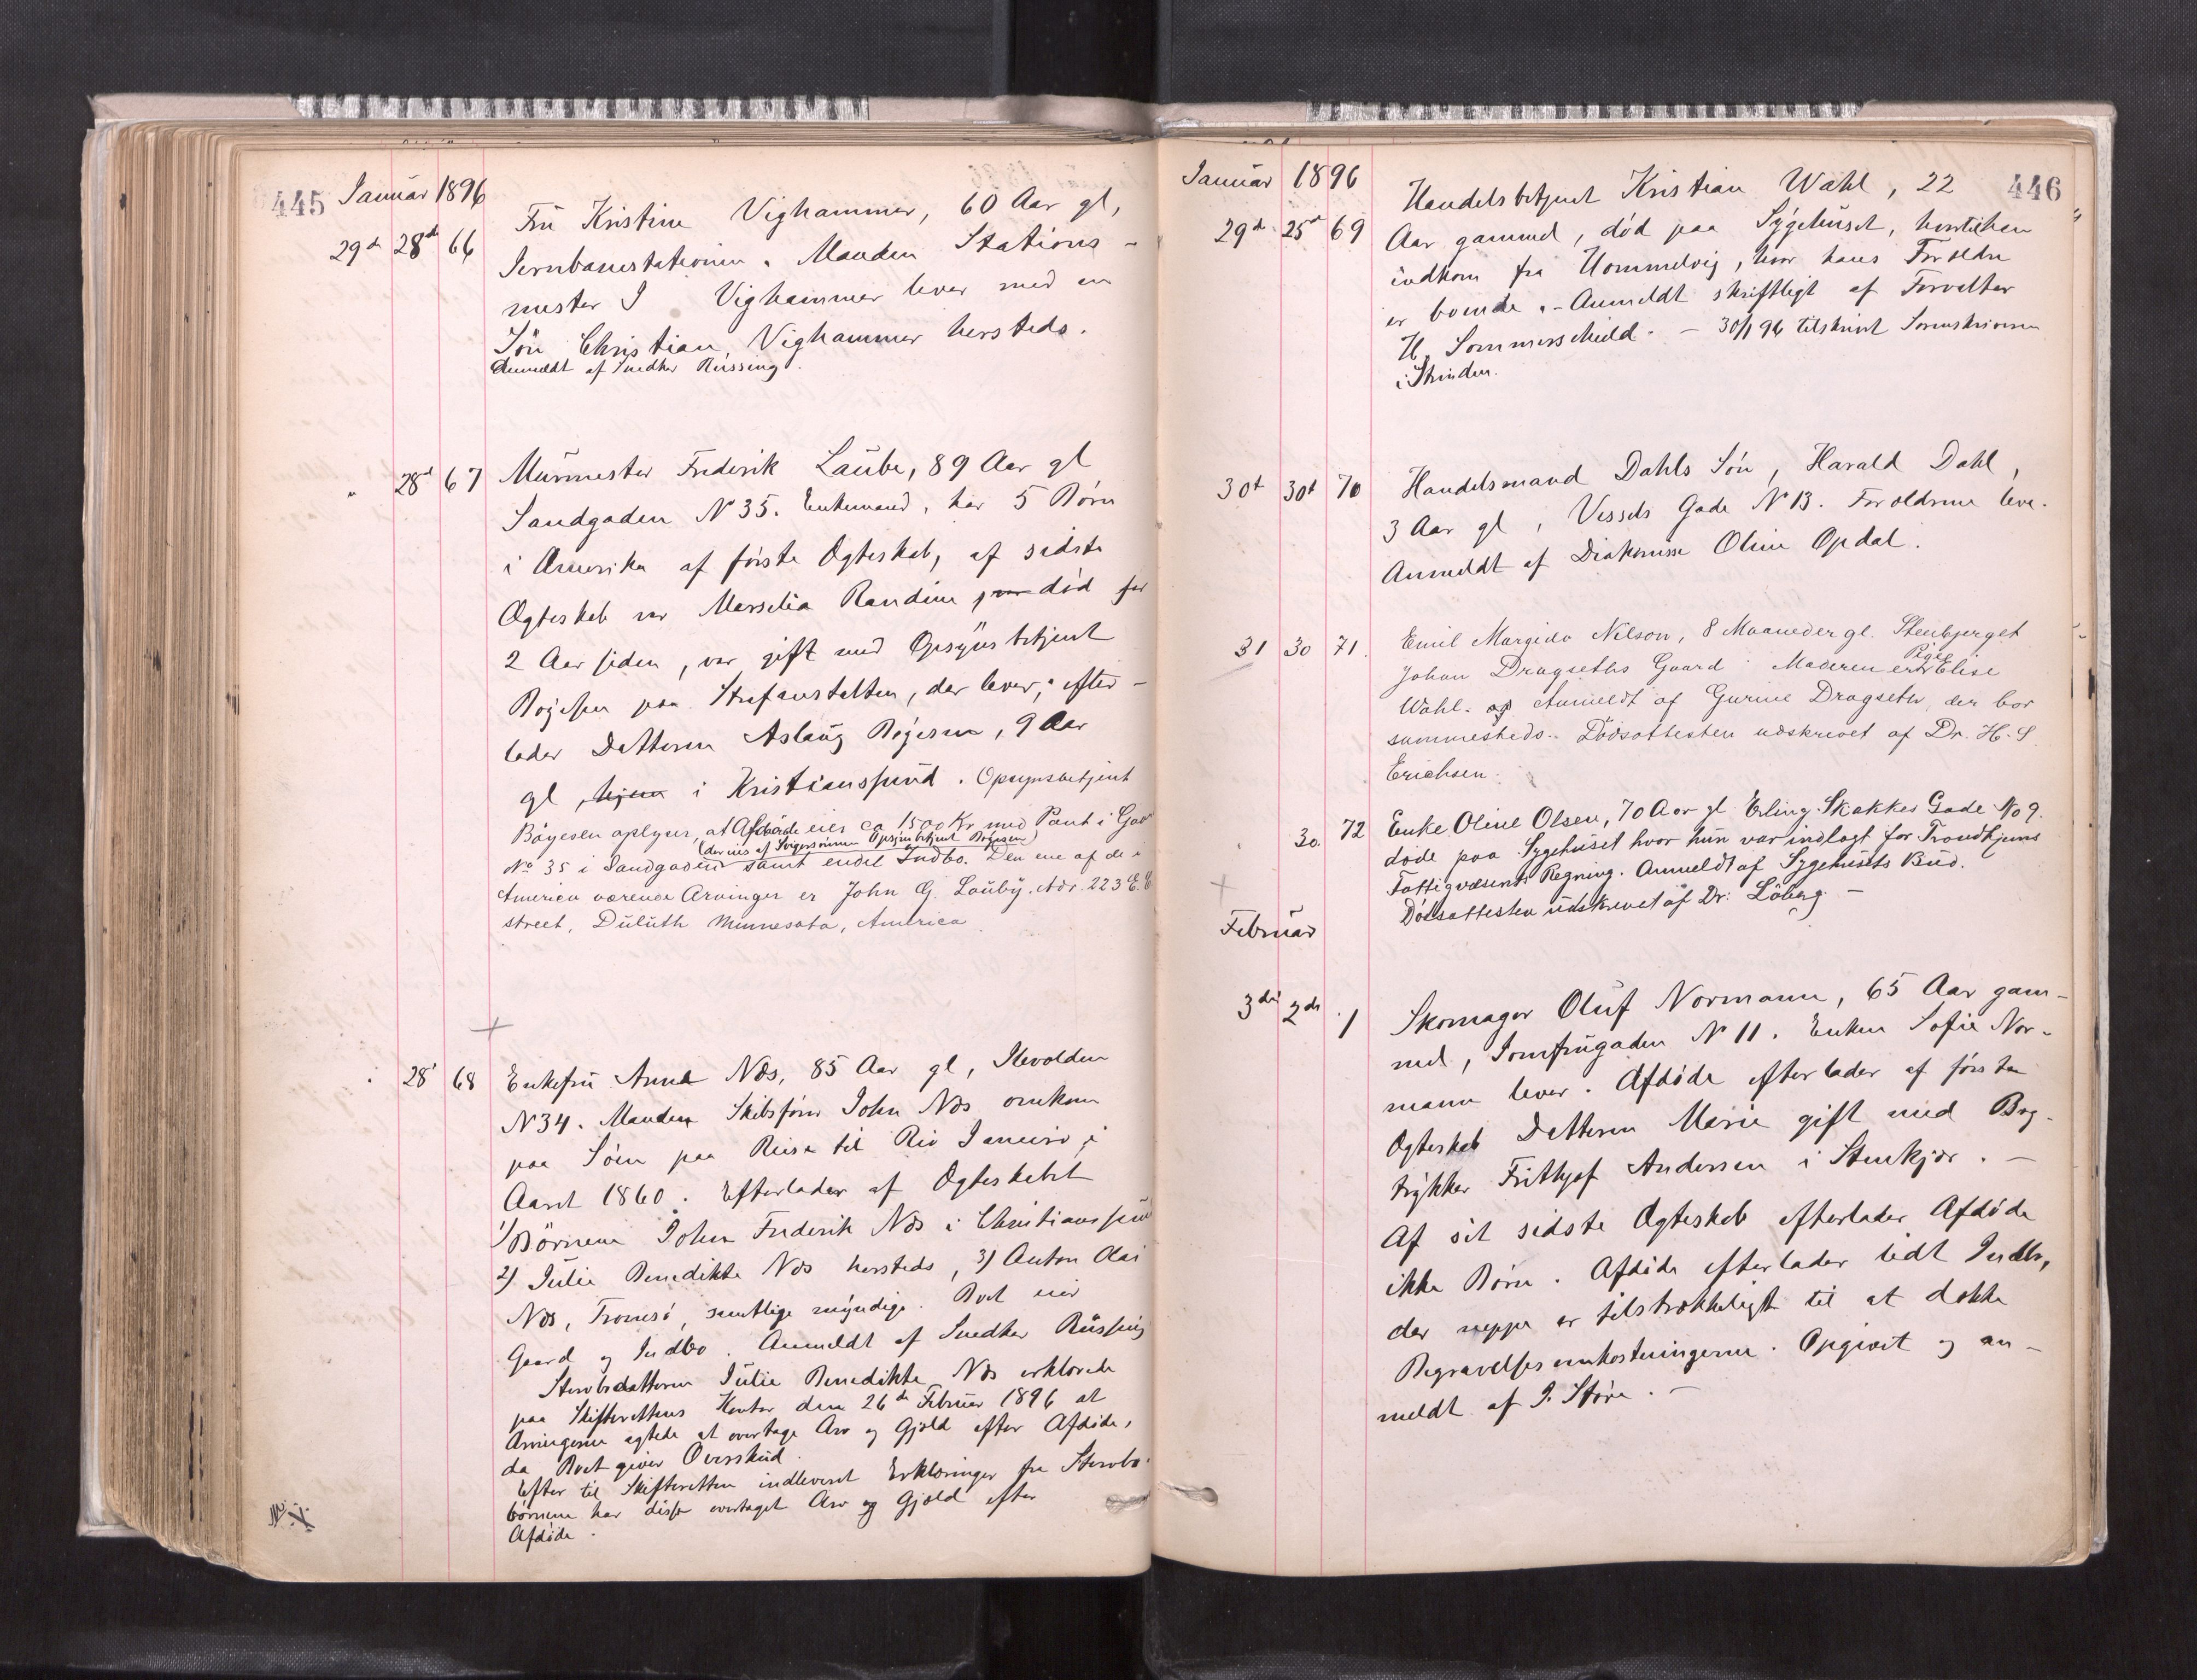 445 Januar 1896
Fru Kristine Vighammer, 60 Aar gl,
29de 28de 66 Jernbanestationen. Manden Stations-
mester J Vighammer lever med en
Søn Christian Vighammer hersteds.
Anmeldt af Snedker Russing.
" 28d 67 Murmester Frederik Laube, 89 Aar gl
Sandgaden No 35. Enkemand, har 5 Børn
i Amerika af første Ægteskab, af sidste
Ægteskab var Marselia Randine, var død for
2 Aar siden, var gift med Opsynsbetjent
Bøjesen paa Strafanstalten, der lever, efter-
lader Datteren Aslaug Bøjesen, 9 Aar
gl, hjem i Kristianssund. Opsynsbetjent
Böyesen oplyser, at Afdøde eier ca 1500 Kr med Pant i Gaar
(der eies af Svigersønnen Opsynsbetjent Böjesen)
No 35 i Sandgaden samt endel Indbo. Den ene af de i
America værende Arvinger er John G. Lauby. Adr. 223 E. 6
street, Duluth Minnesota, America
" 28' 68 Enkefru Anna Næs, 85 Aar gl, Ilevolden
N 34. Manden Skibsfører John Næs omkom
paa Søen paa Reise til Rio Janeiro i
Aaret 1860. Efterlader af Ægteskabet
1) Børnene John Frederik Næs i Christianssund
2) Julie Benedikte Næs hersteds, 3) Anton Olai
Næs, Tromsø, samtlige myndige. Boet eier
Gaard og Indbo. Anmeldt af Snedker Russing
Stervbodatteren Julie Benedikte Næs erklærede
paa Skifterettens Kontor den 26de Februar 1896 at
Arvingerne agtede at overtage Arv og Gjæld efter Afdøde,
da Boet giver Overskud.
Efter til Skifteretten indleveret Erklæringer fra Stervbo-
børnene har disse overtaget Arv og Gjæld efter
Afdøde.
Januar 1896 446
Handelsbetjent Kristian Wahl, 22
29de 25de 69 Aar gammel, død paa Sygehuset, hvortil han
indkom fra Hommelvig, hvor hans Forældre
er boende. - Anmeldt skriftligt af Forvalter
H. Sommerschield. - 30/1 96 tilskrevet Sorenskriveren
i Strinden.
30d 30d 70 Handelsmand Dahls Søn, Harald Dahl,
3 Aar gl, Vessels Gade No 13. Forældrene leve.
Anmeldt af Diakonisse Oline Opdal.
31 30 71. Emil Margido Nilson, 8 Maaneder gl. Stenbjerget
Johan Dragseths Gaard. Moderen er Pige Elise
Wahl. og Anmeldt af Gurine Dragseth, der bor
sammesteds. Dödsattesten udskrevet af Dr. H. S.
Erichsen.
" 30. 72 Enke Oline Olsen, 70 Aar gl Erling Skakkes Gade No 9.
døde paa Sygehuset hvor hun var indlagt for Trondhjems
Fattigvæsents Regning. Anmeldt af Sygehusets Bud.
Dödsattesten udskrevet af Dr: Löberg. -
Februar
3die 2den 1 Skomager Oluf Normann, 65 Aar gam-
mel, Jomfrugaden No 11. Enken Sofie Nor-
mann lever. Afdøde efterlader af første
Ægteskab Datteren Marie gift med Bog-
trykker Frithjof Andersen i Stenkjær. -
Af sit sidste Ægteskab efterlader Afdøde
ikke Børn. Afdøde efterlader lidt Indbo,
der neppe er tilstrækkeligt til at dække
Begravelsesomkostningerne. Opgivet og an-
meldt af J. Støre. -